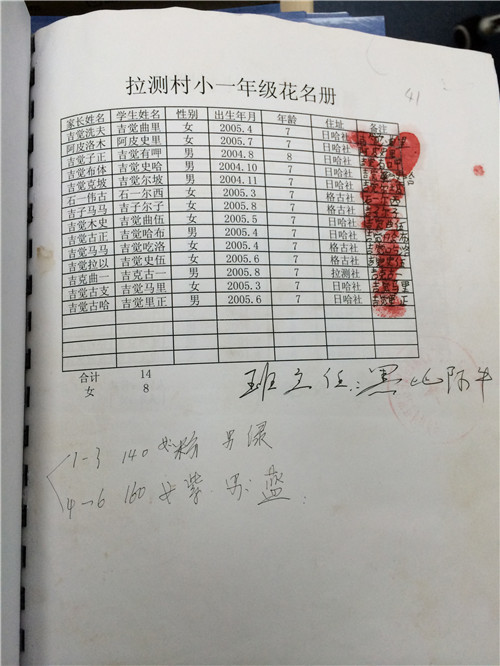 拉测村小一年级花名册
41
家长姓名 学生姓名 性别 出生年月 年龄 住址 备注
吉觉洗夫 吉觉曲里 女 2005.4 7 日哈社
阿皮洛木 阿皮史里 女 2005.7 7 日哈社
吉觉子正 吉觉有呷 男 2004.8 8 日哈社
吉觉布体 吉觉史哈 男 2004.10 7 日哈社
吉觉克坡 吉觉尔坡 男 2004.11 7 日哈社
石一伟古 石一尔西 女 2005.3 7 格古社
吉子马马 吉子尔子 女 2005.8 7 格古社
吉觉木史 吉觉曲伍 女 2005.5 7 日哈社
吉觉古正 吉觉哈布 男 2005.4 7 日哈社
吉觉马马 吉觉吃洛 女 2005.4 7 格古社
吉觉拉以 吉觉史伍 女 2005.6 7 格古社
吉克曲一 吉克古一 男 2005.8 7 拉测社
吉觉古支 吉觉马里 女 2005.3 7 日哈社
吉觉古哈 吉觉里正 男 2005.6 7 日哈社
合计 14
女 8
班主任：黑比阿牛
1-3 140 女粉 男绿
4-6 160 女紫 男蓝